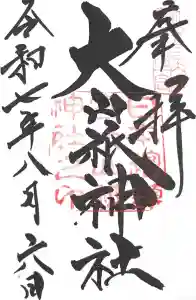 奉拝
大山祇神社
令和七年八月六日